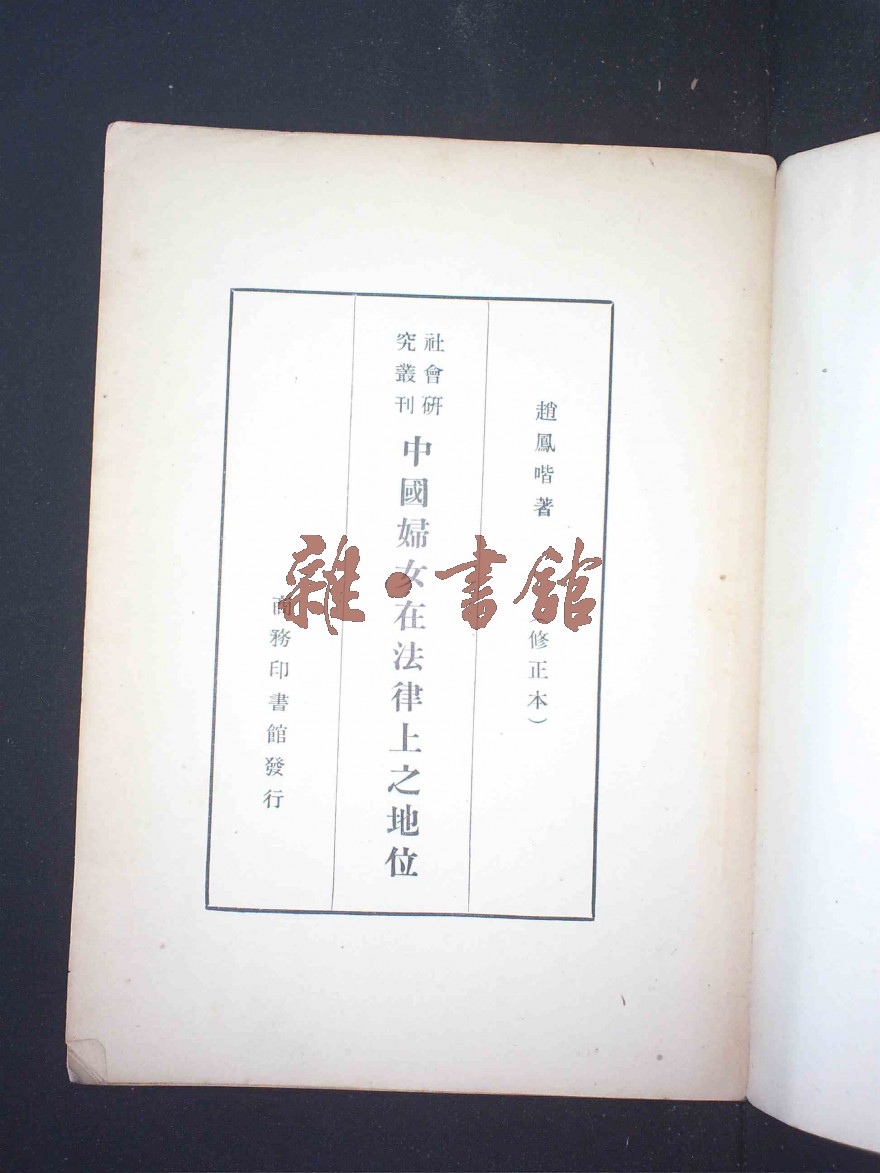 趙鳳喈著
（修正本）
社會研
究叢刊
中國婦女在法律上之地位
商務印書館發行
雜·書館